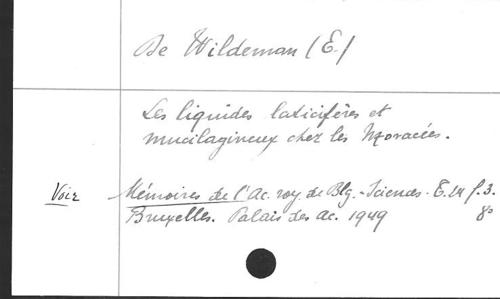 De Wildeman (E.)
Les liquides laticifères et
mucilagineux chez les Moracées.
Voir Mémoires de l'Ac. roy. de Blg. - Sciences - T. 24 f. 3.
Bruxelles. Palais des Ac. 1949 8°